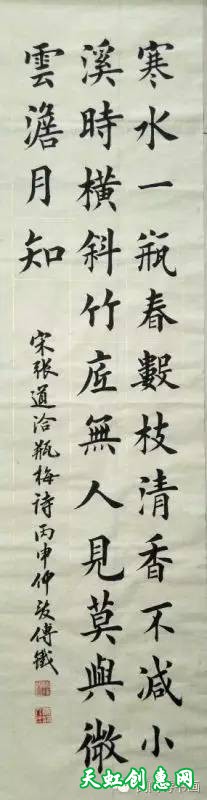 寒水一瓶春數枝清香不減小
溪時橫斜竹底無人見莫與微
雲澹月知
宋张道洽瓶梅诗丙申仲
天虹创意网